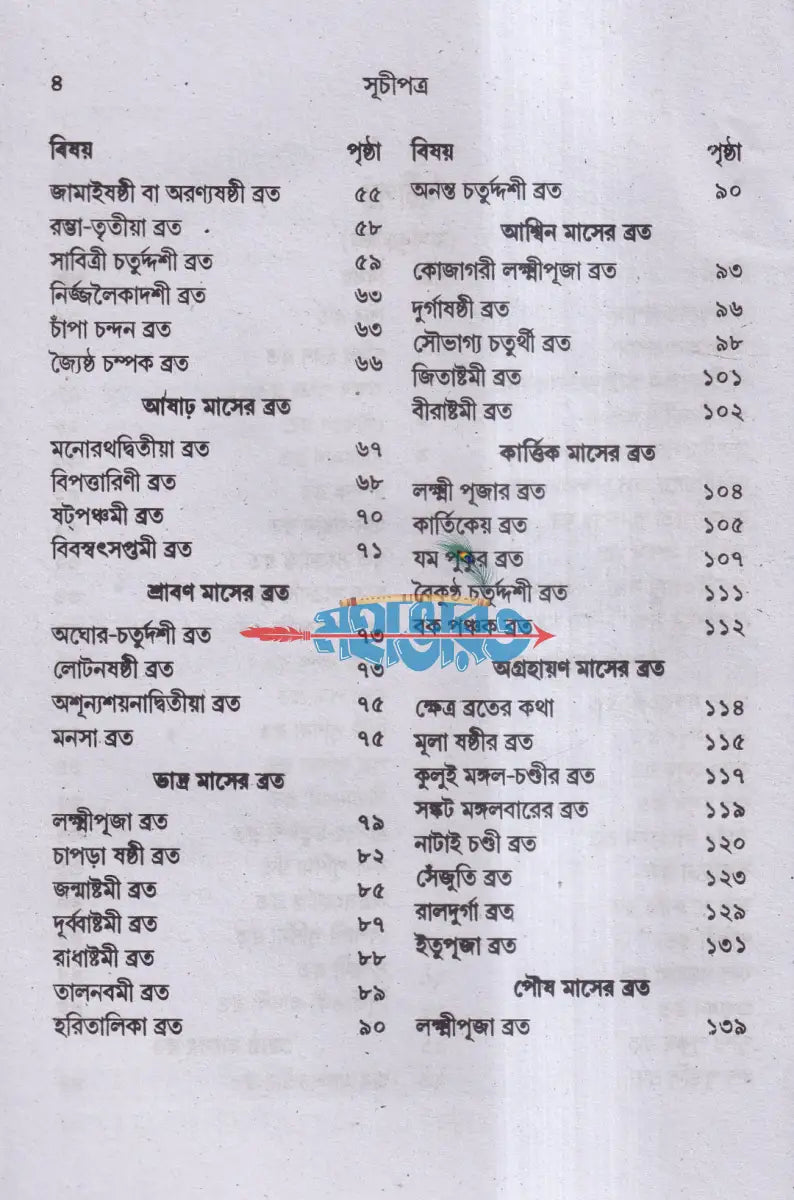 ৪
সূচীপত্র
বিষয় পৃষ্ঠা
জামাইষষ্ঠী বা অরণ্যষষ্ঠী ব্রত ৫৫
রম্ভা-তৃতীয়া ব্রত ৫৮
সাবিত্রী চতুর্দ্দশী ব্রত ৫৯
নির্জ্জলৈকাদশী ব্রত ৬৩
চাঁপা চন্দন ব্রত ৬৩
জ্যৈষ্ঠ চম্পক ব্রত ৬৬
আষাঢ় মাসের ব্রত
মনোরথদ্বিতীয়া ব্রত ৬৭
বিপত্তারিণী ব্রত ৬৮
ষট্‌পঞ্চমী ব্রত ৭০
বিবস্বৎসপ্তমী ব্রত ৭১
শ্রাবণ মাসের ব্রত
অঘোর-চতুর্দশী ব্রত ৭৩
লোটনষষ্ঠী ব্রত ৭৩
অশূন্যশয়নাদ্বিতীয়া ব্রত ৭৫
মনসা ব্রত ৭৫
ভাদ্র মাসের ব্রত
লক্ষ্মীপূজা ব্রত ৭৯
চাপড়া ষষ্ঠী ব্রত ৮২
জন্মাষ্টমী ব্রত ৮৫
দূর্ব্বাষ্টমী ব্রত ৮৭
রাধাষ্টমী ব্রত ৮৮
তালনবমী ব্রত ৮৯
হরিতালিকা ব্রত ৯০
বিষয় পৃষ্ঠা
অনন্ত চতুর্দ্দশী ব্রত ৯০
আশ্বিন মাসের ব্রত
কোজাগরী লক্ষ্মীপূজা ব্রত ৯৩
দুর্গাষষ্ঠী ব্রত ৯৬
সৌভাগ্য চতুর্থী ব্রত ৯৮
জিতাষ্টমী ব্রত ১০১
বীরাষ্টমী ব্রত ১০২
কার্ত্তিক মাসের ব্রত
লক্ষ্মী পূজার ব্রত ১০৪
কার্তিকেয় ব্রত ১০৫
যম পুকুর ব্রত ১০৭
বৈকুণ্ঠ চতুর্দ্দশী ব্রত ১১১
বক পঞ্চক ব্রত ১১২
মহাভারত
অগ্রহায়ণ মাসের ব্রত
ক্ষেত্র ব্রতের কথা ১১৪
মূলা ষষ্ঠীর ব্রত ১১৫
কুলুই মঙ্গল-চণ্ডীর ব্রত ১১৭
সঙ্কট মঙ্গলবারের ব্রত ১১৯
নাটাই চণ্ডী ব্রত ১২০
সেঁজুতি ব্রত ১২৩
রালদুর্গা ব্রত ১২৯
ইতুপূজা ব্রত ১৩১
পৌষ মাসের ব্রত
লক্ষ্মীপূজা ব্রত ১৩৯